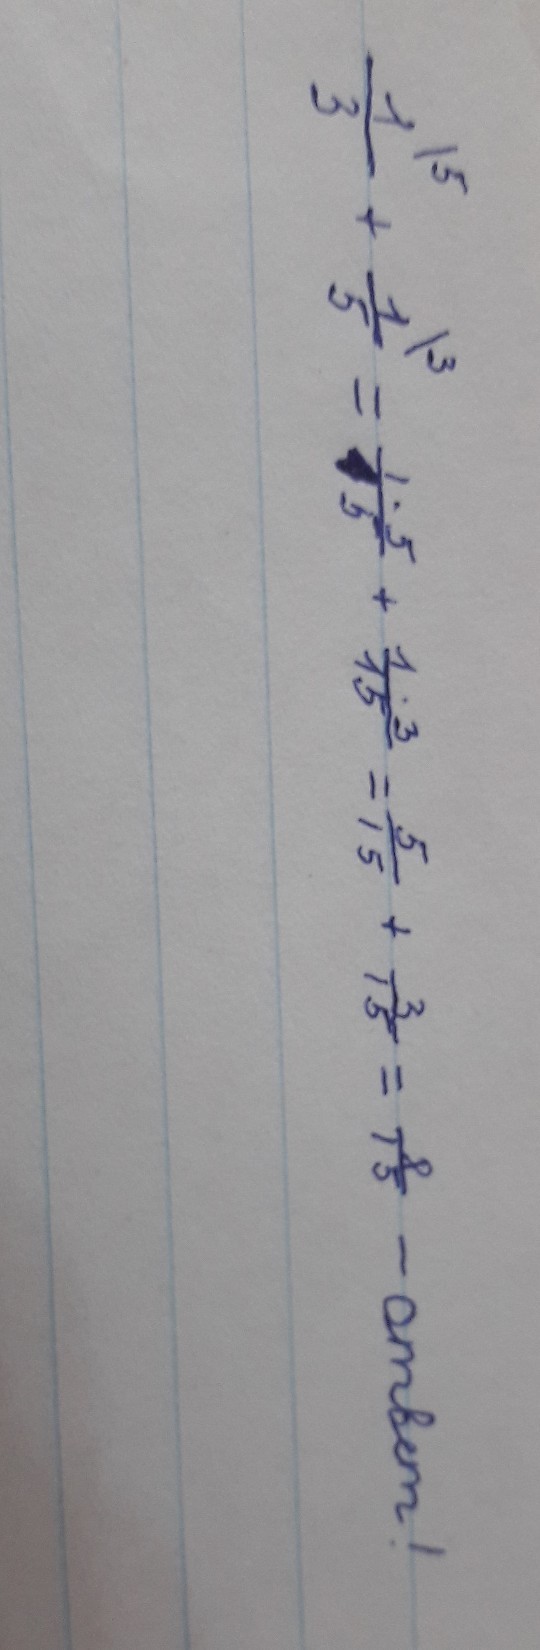 1/3 \5 + 1/5 \3 = 1·5/15 + 1·3/15 = 5/15 + 3/15 = 8/15 - ответ!